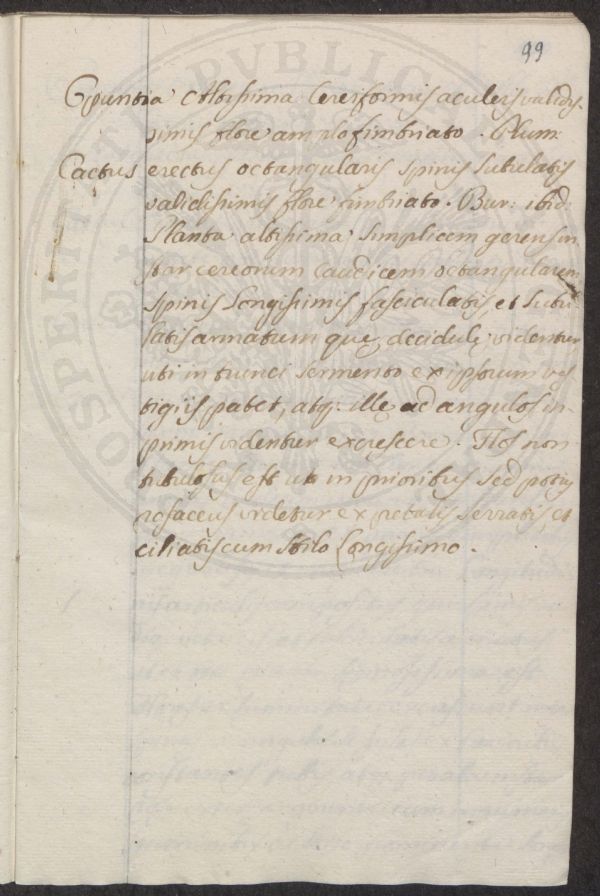 99
Opuntia altissima Cereiformis aculeis validis-
simis flore amplo fimbriato. Plum:
Cactus erectus octangularis spinis subulatis
validissimis flore fimbriato. Bur: ibid:
Planta altissima simplicem gerens in-
star cereorum Caudicem octangularem
spinis longissimis fasciculatis, et subu-
latis armatum quę deciduę videntur,
uti in trunci sermento ex ipsorum ves
tigiis patet, atq: illę ad angulos in-
primis videntur excrescere. Flos non
tubulosus est ut in prioribus sed potius
rosaceus videtur ex petalis serratis et
ciliatis cum stilo longissimo.